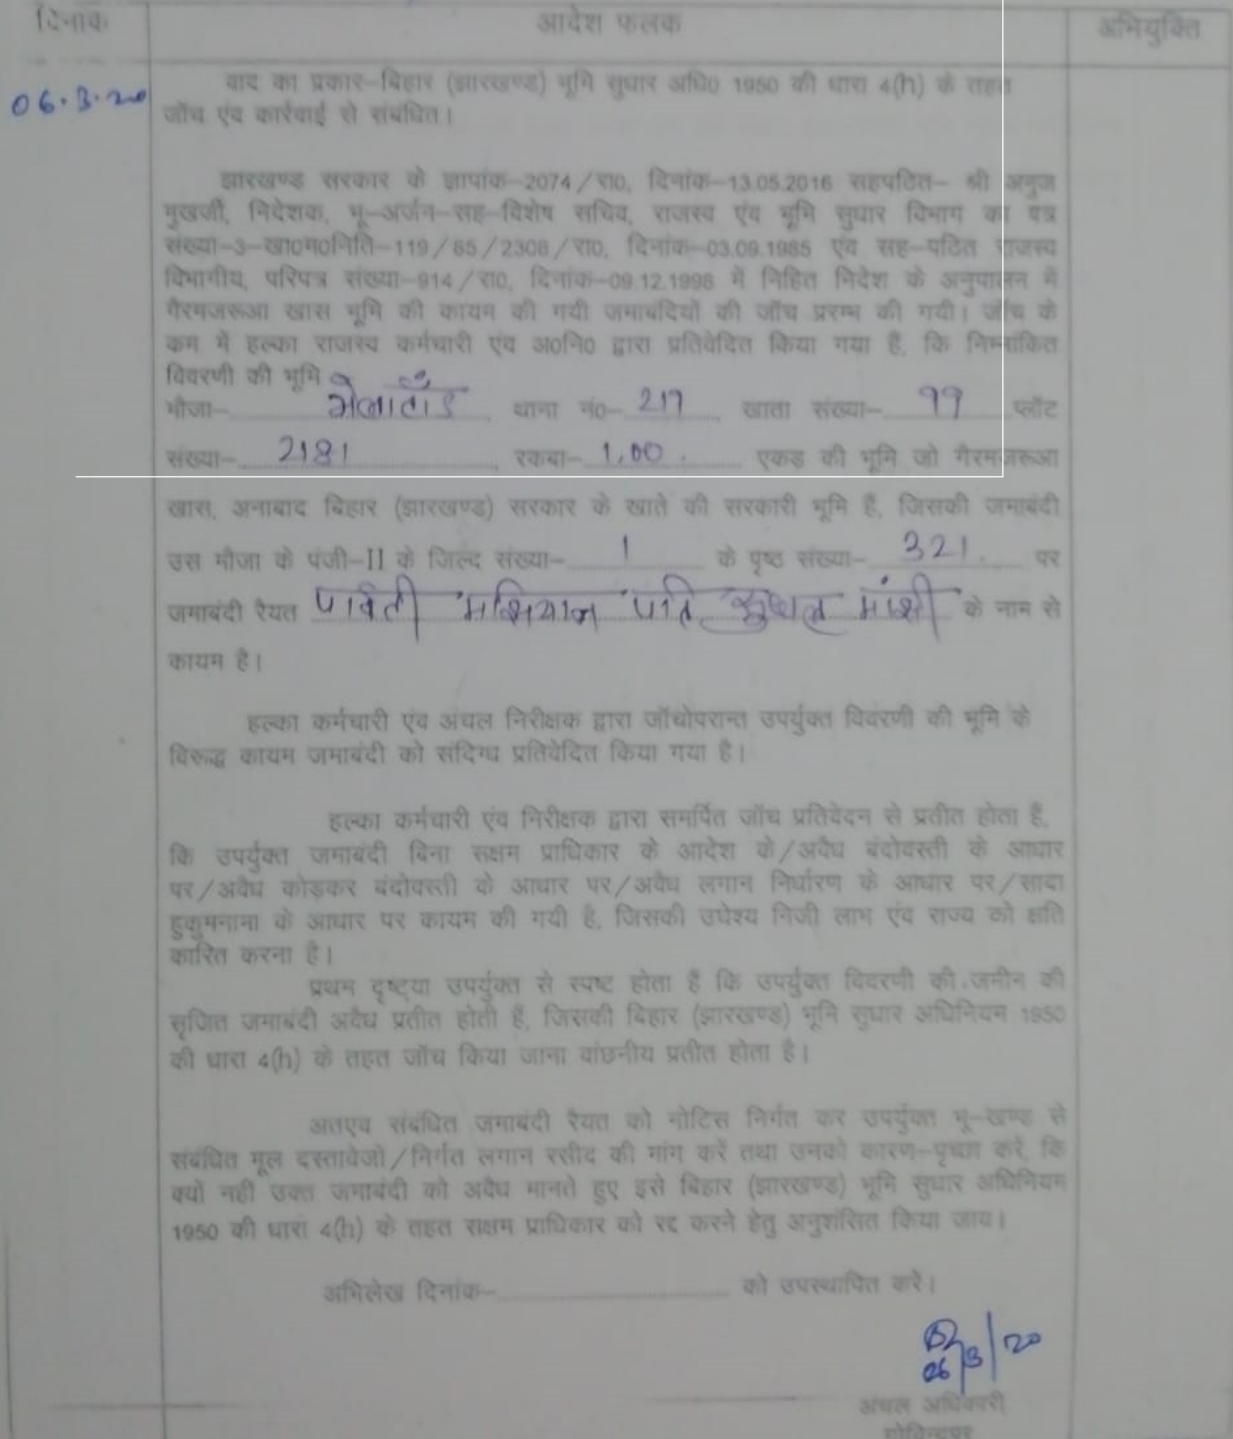 दिनांक आदेश फलक अभियुक्ति
06.3.20
वाद का प्रकार-बिहार (झारखण्ड) भूमि सुधार अधि0 1950 की धारा 4(h) के तहत
जॉच एंव कार्रवाई से संबंधित।
झारखण्ड सरकार के ज्ञापांक-2074/रा0, दिनांक-13.05.2016 सहपठित- श्री अनुज
मुखर्जी, निदेशक, भू-अर्जन-सह-विशेष सचिव, राजस्व एंव भूमि सुधार विभाग का पत्र
संख्या-3-खा0म0निति-119/85/2308/रा0, दिनांक-03.09.1985 एंव सह-पठित राजस्व
विभागीय, परिपत्र संख्या-914/रा0, दिनांक-09.12.1998 में निहित निदेश के अनुपालन में
गैरमजरूआ खास भूमि की कायम की गयी जमाबंदियों की जॉच प्ररम्भ की गयी। जॉच के
कम में हल्का राजस्व कर्मचारी एंव अ0नि0 द्वारा प्रतिवेदित किया गया है, कि निम्नांकित
विवरणी की भूमि
मौजा- भेलाटाँड थाना नं0- 217 खाता संख्या- 99 प्लॉट
संख्या- 2181 रकबा- 1.00. एकड़ की भूमि जो गैरमजरूआ
खास, अनाबाद बिहार (झारखण्ड) सरकार के खाते की सरकारी भूमि हैं, जिसकी जमाबंदी
उस मौजा के पंजी-II के जिल्द संख्या- 1 के पृष्ठ संख्या- 321. पर
जमाबंदी रैयत पार्वती मझियान पति मांझी के नाम से
कायम है।
हल्का कर्मचारी एंव अंचल निरीक्षक द्वारा जॉचोपरान्त उपर्युक्त विवरणी की भूमि के
विरूद्ध कायम जमाबंदी को संदिग्ध प्रतिवेदित किया गया है।
हल्का कर्मचारी एंव निरीक्षक द्वारा समर्पित जॉच प्रतिवेदन से प्रतीत होता है,
कि उपर्युक्त जमाबंदी बिना सक्षम प्राधिकार के आदेश के/अवैध बंदोवस्ती के आधार
पर/अवैध कोड़कर बंदोवस्ती के आधार पर/अवैध लगान निर्धारण के आधार पर/सादा
हुकुमनामा के आधार पर कायम की गयी है, जिसकी उपेश्य निजी लाभ एंव राज्य को क्षति
कारित करना है।
प्रथम दृष्ट्या उपर्युक्त से स्पष्ट होता हैं कि उपर्युक्त विवरणी की जमीन की
सृजित जमाबंदी अवैध प्रतीत होती हैं, जिसकी बिहार (झारखण्ड) भूमि सुधार अधिनियम 1950
की धारा 4(h) के तहत जॉच किया जाना वांछनीय प्रतीत होता है।
अतएव संबंधित जमाबंदी रैयत को नोटिस निर्गत कर उपर्युक्त भू-खण्ड से
संबंधित मूल दस्तावेजो/निर्गत लगान रसीद की मांग करें तथा उनको कारण-पृच्छा करें, कि
क्यों नहीं उक्त जमाबंदी को अवैध मानते हुए इसे बिहार (झारखण्ड) भूमि सुधार अधिनियम
1950 की धारा 4(h) के तहत सक्षम प्राधिकार को रद्द करने हेतु अनुशंसित किया जाय।
अभिलेख दिनांक- को उपस्थापित करें।
06/3/20
अंचल अधिकारी
गोविन्दपुर